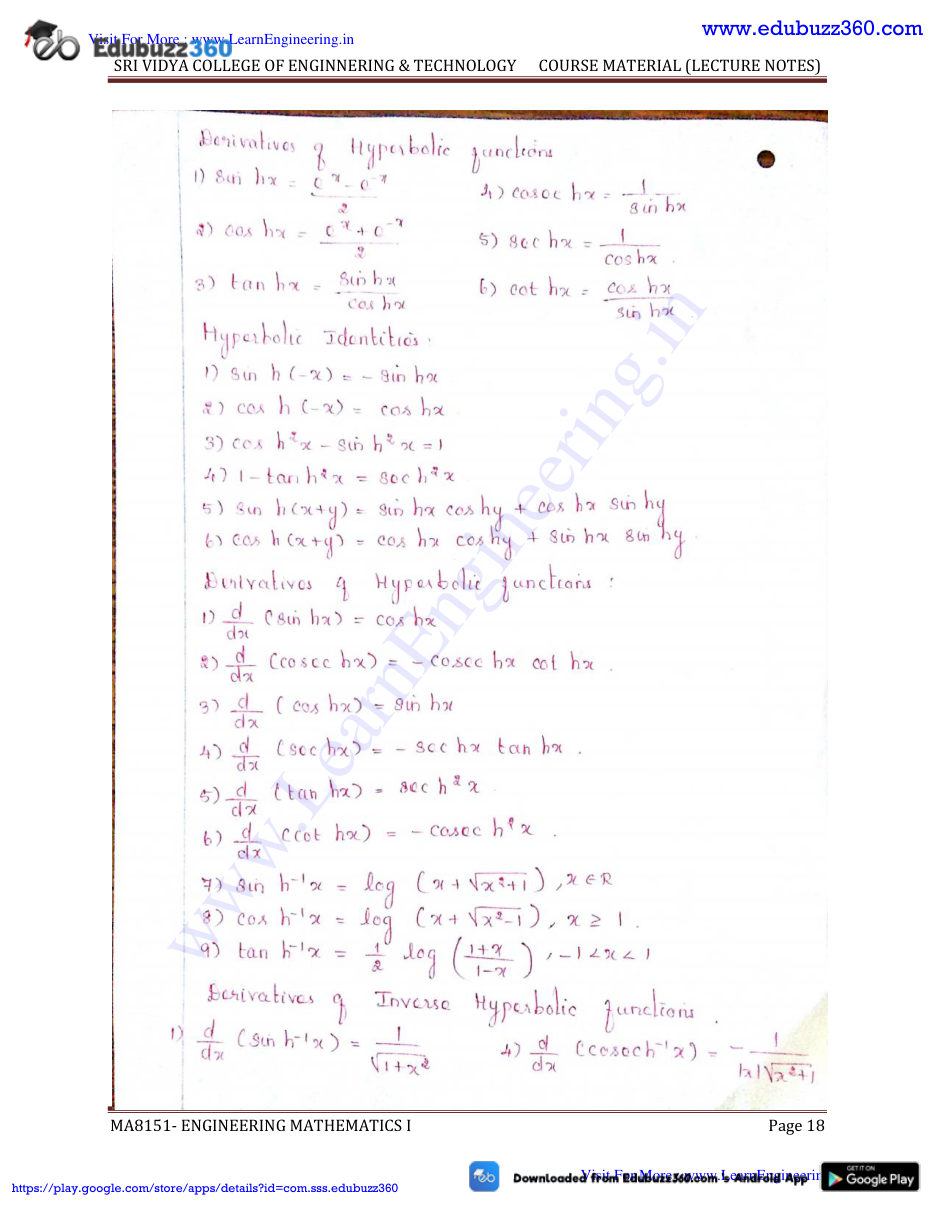 www.edubuzz360.com
Visit For More : www.LearnEngineering.in
Edubuzz360
SRI VIDYA COLLEGE OF ENGINNERING & TECHNOLOGY COURSE MATERIAL (LECTURE NOTES)
Derivatives of Hyperbolic functions
1) sin hx = (e^x - e^-x)/2
4) cosec hx = 1/(sin hx)
2) cos hx = (e^x + e^-x)/2
5) sec hx = 1/(cos hx) .
3) tan hx = (sin hx)/(cos hx)
6) cot hx = (cos hx)/(sin hx) .
Hyperbolic Identities .
1) sin h (-x) = - sin hx
2) cos h (-x) = cos hx
3) cos h²x - sin h²x = 1
4) 1 - tan h²x = sec h²x
5) sin h(x+y) = sin hx cos hy + cos hx sin hy
6) cos h (x+y) = cos hx cos hy + sin hx sin hy .
Derivatives of Hyperbolic functions :
1) d/dx (sin hx) = cos hx
2) d/dx (cosec hx) = - cosec hx cot hx .
3) d/dx (cos hx) = sin hx
4) d/dx (sec hx) = - sec hx tan hx .
5) d/dx (tan hx) = sec h²x
6) d/dx (cot hx) = - cosec h²x .
7) sin h⁻¹x = log (x + √(x²+1)) , x ∈ R
8) cos h⁻¹x = log (x + √(x²-1)) , x ≥ 1 .
9) tan h⁻¹x = 1/2 log ((1+x)/(1-x)) , -1 < x < 1
Derivatives of Inverse Hyperbolic functions .
1) d/dx (sin h⁻¹x) = 1/√(1+x²)
4) d/dx (cosec h⁻¹x) = - 1/(|x|√(x²+1))
www.LearnEngineering.in
MA8151- ENGINEERING MATHEMATICS I Page 18
Downloaded from EduBuzz360.com's Android App
Visit For More : www.LearnEngineerin
GET IT ON
Google Play
https://play.google.com/store/apps/details?id=com.sss.edubuzz360